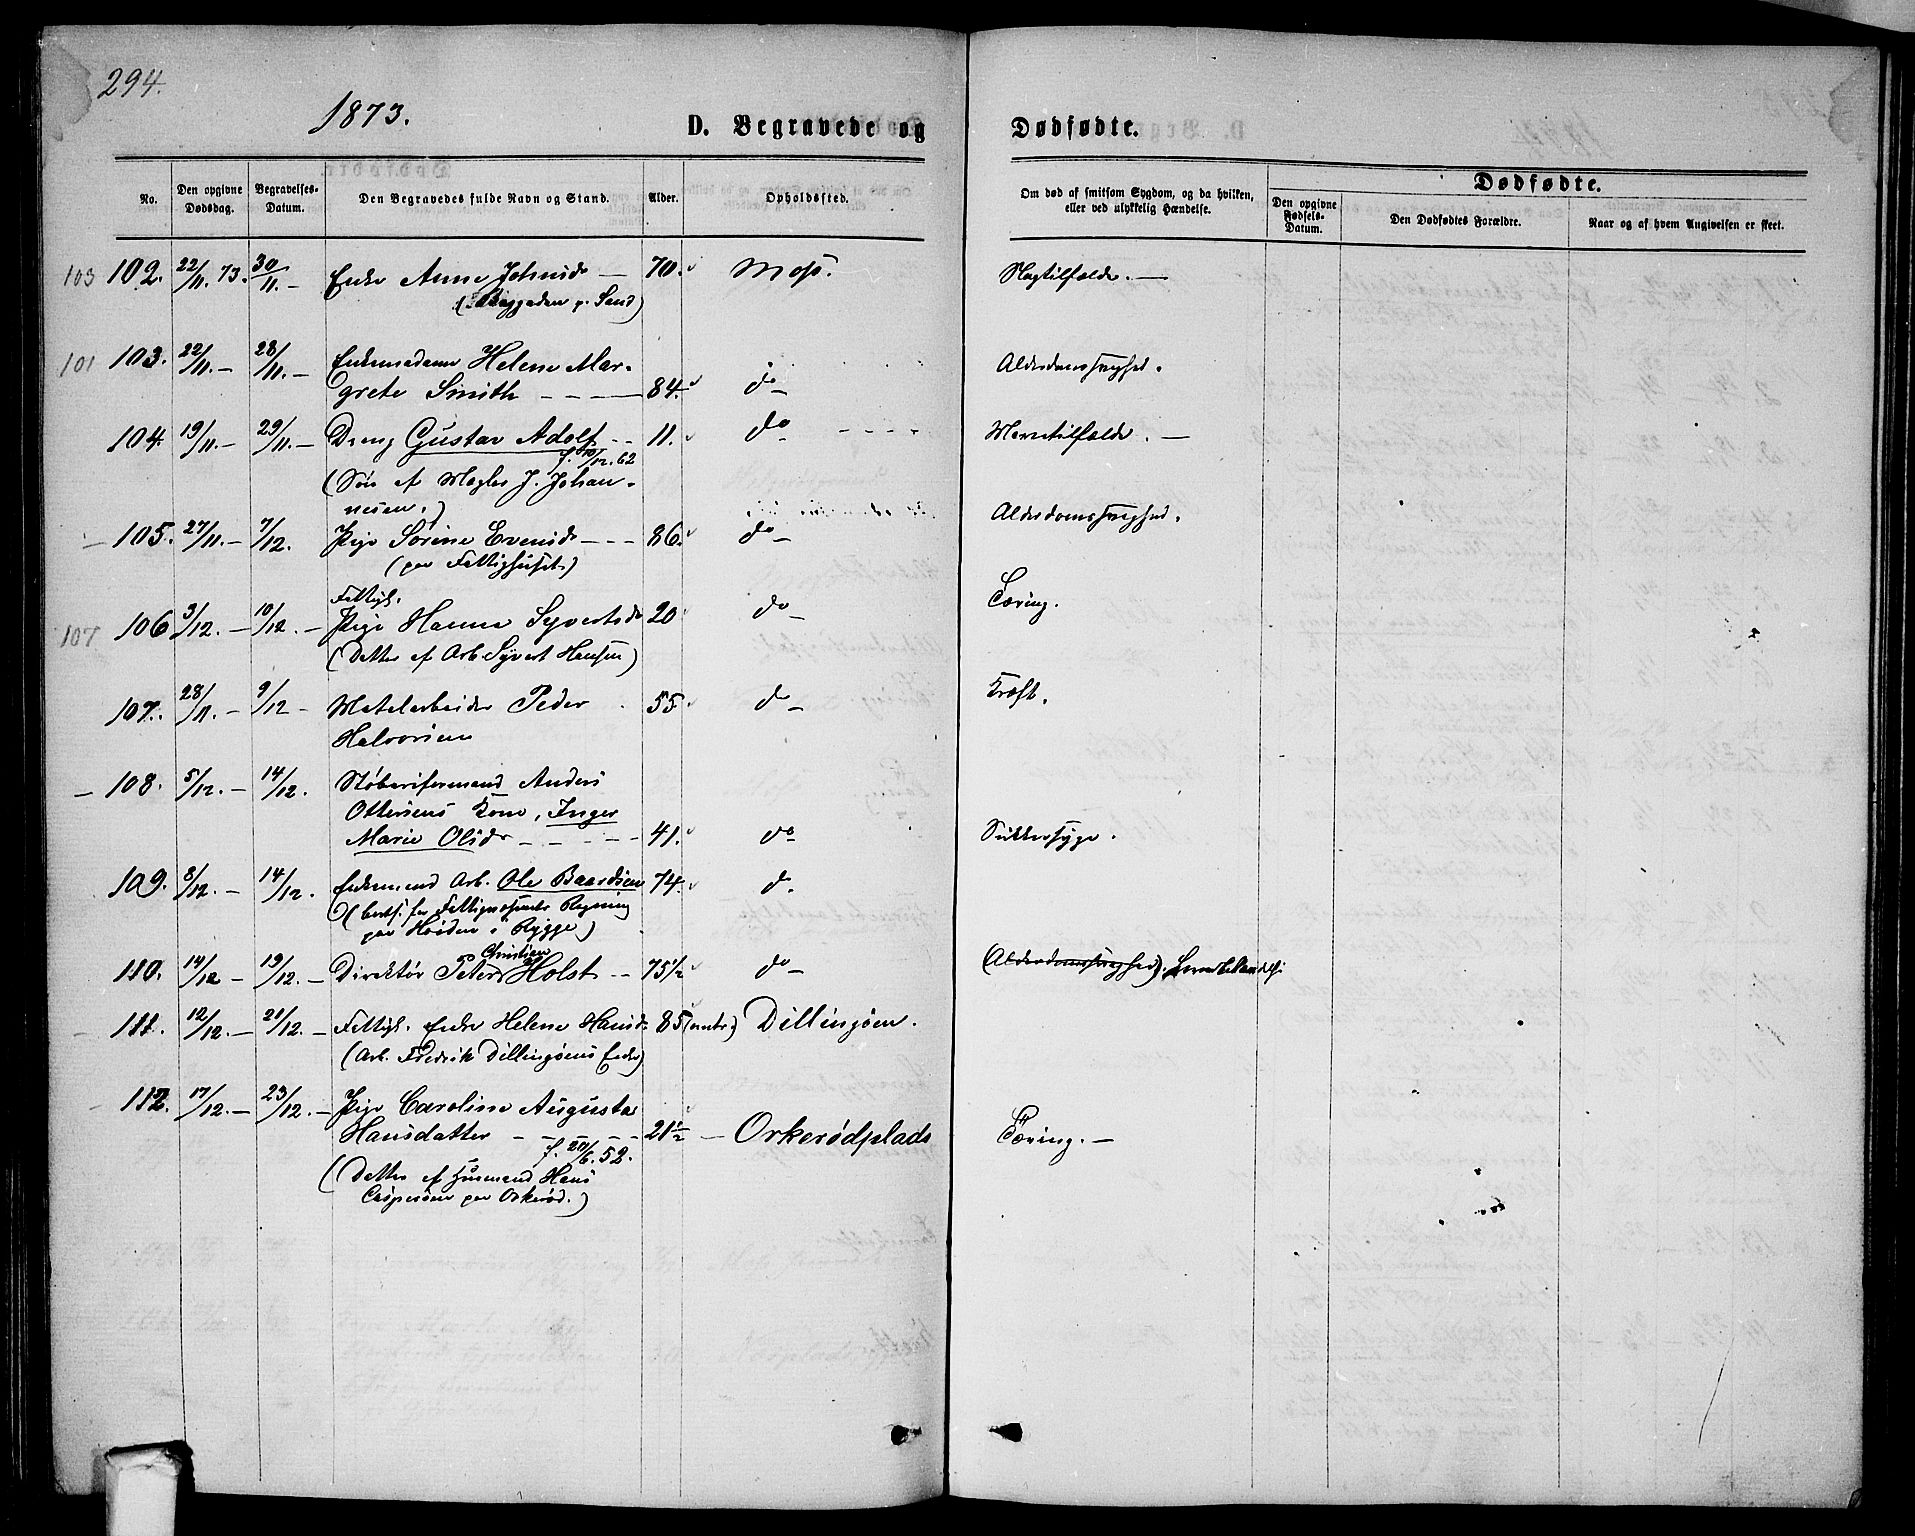 294.
1873.
D. Begravede og
Dødfødte.
No.
Den opgivne Dødsdag.
Begravelses-Datum.
Den Begravedes fulde Navn og Stand.
Alder.
Opholdssted.
Om død af smitsom Sygdom, og da hvilken, eller ved ulykkelig Hændelse.
Dødfødte.
Den opgivne Fødsels-Datum.
Den Dødfødtes Forældre.
Naar og af hvem Angivelsen er skeet.
103 102. 22/11. 73. 30/11. — Enke Anne Johnsdr — 70. Moss. Slagtilfælde. —
p. Sand)
101 103. 22/11. — 28/11. — Enkemadame Helene Mar-
grete Smith — — — 84. do — Alderdomssvaghed.
104. 19/11. — 29/11. — Dreng Gustav Adolf — — 11. do — Nervetilfælde. —
f. 10/12. 62
(Søn af Mægler J. Johan-
nesen.)
— 105. 27/11. — 7/12. Pige Sørine Evensdr — — — 86. do — Alderdomssvaghed.
(paa Fattighuset)
Fattigl.
107 106 3/12. — 10/12. — Pige Hanne Syvertsdr 20 do — Tæring.
(Datter af Arb. Syvert Hansen)
107. 28/11. — 9/12 — Peder 55 do — Kræft.
Halvorsen
— 108. 5/12. — 14/12. Støberiformand Anders
Ottersens Kone, Inger
Marie Olsdr — — — — 41. do Sukkersyge.
109. 8/12. — 14/12. Enkemand Arb. Ole Baardsen 74. d.
(borts. for Fattigvæsenets Regning
paa Høiden i Rygge)
Christian
110. 14/12 — 19/12. — Direktør Peter Holst — — 75½ do — (Alderdomssvaghed).
— 111. 12/12. — 21/12. — Fattigl. Enke Helene Hansdr 85 (omtr.) Dillingøen.
(Arb. Fredrik Dillingøens Enke)
— 112. 17/12. — 23/12. — Pige Caroline Augusta
Hansdatter — — — — 21½ — Orkerødplads Tæring. —
f. 20/6. 52.
(Datter af Husmand Hans
Caspersen paa Orkerød.)